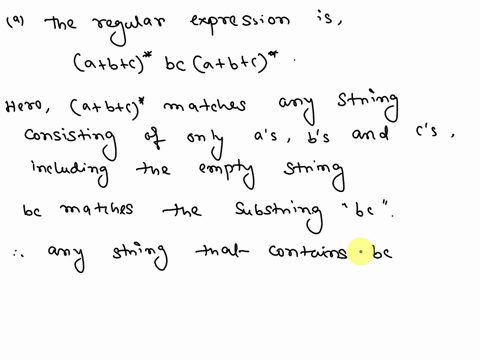 (a) The regular expression is,
(a+b+c)* bc (a+b+c)* .
Here, (a+b+c)* matches any string
consisting of only a's, b's and c's,
including the empty string
bc matches the substring "bc".
∴ any string that contains bc